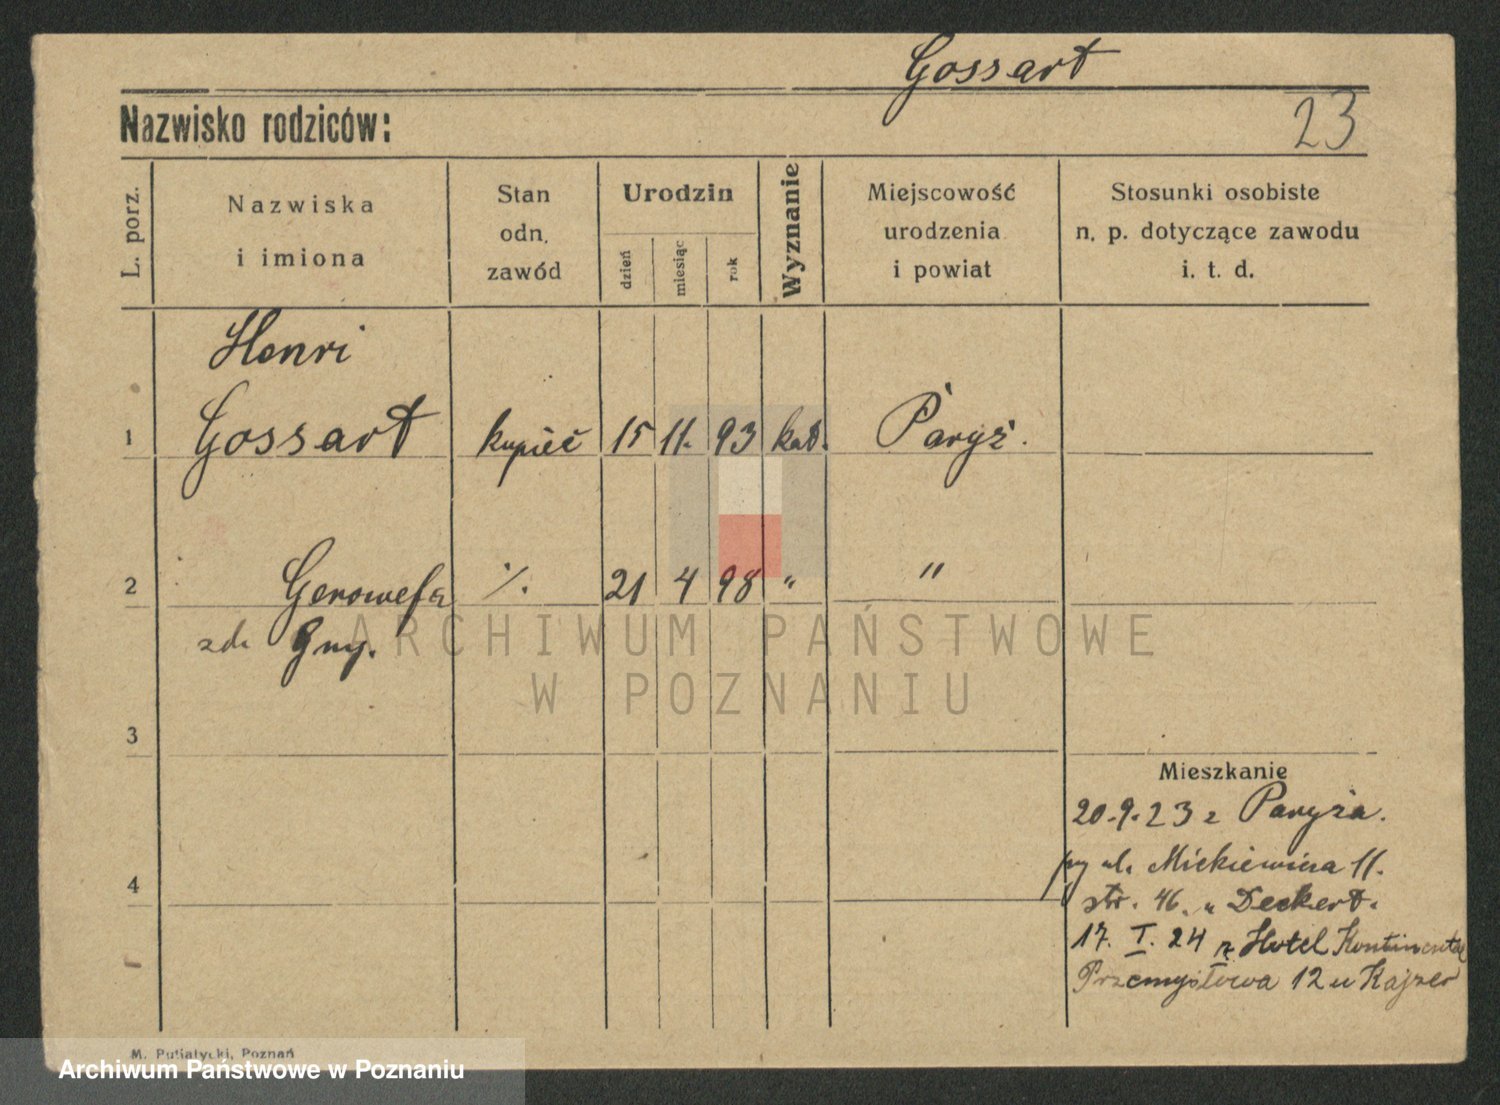 Gossart
Nazwisko rodziców:
23
L. porz.
Nazwiska
i imiona
Stan
odn.
zawód
Urodzin
dzień
miesiąc
rok
Wyznanie
Miejscowość
urodzenia
i powiat
Stosunki osobiste
n. p. dotyczące zawodu
i. t. d.
Henri
1 Gossart kupiec 15 11. 93 kat. Paryż.
2 Genowefa %. 21 4 98 " "
zd.
3
Mieszkanie
20.9.23 z Paryża.
ul. Mickiewicza 11.
4
str. 46. u Deckert.
17. I. 24 z Hotel Kontinental
Przemysłowa 12 u Kajzer
ARCHIWUM PAŃSTWOWE
W POZNANIU
M. Putiatycki, Poznań
Archiwum Państwowe w Poznaniu